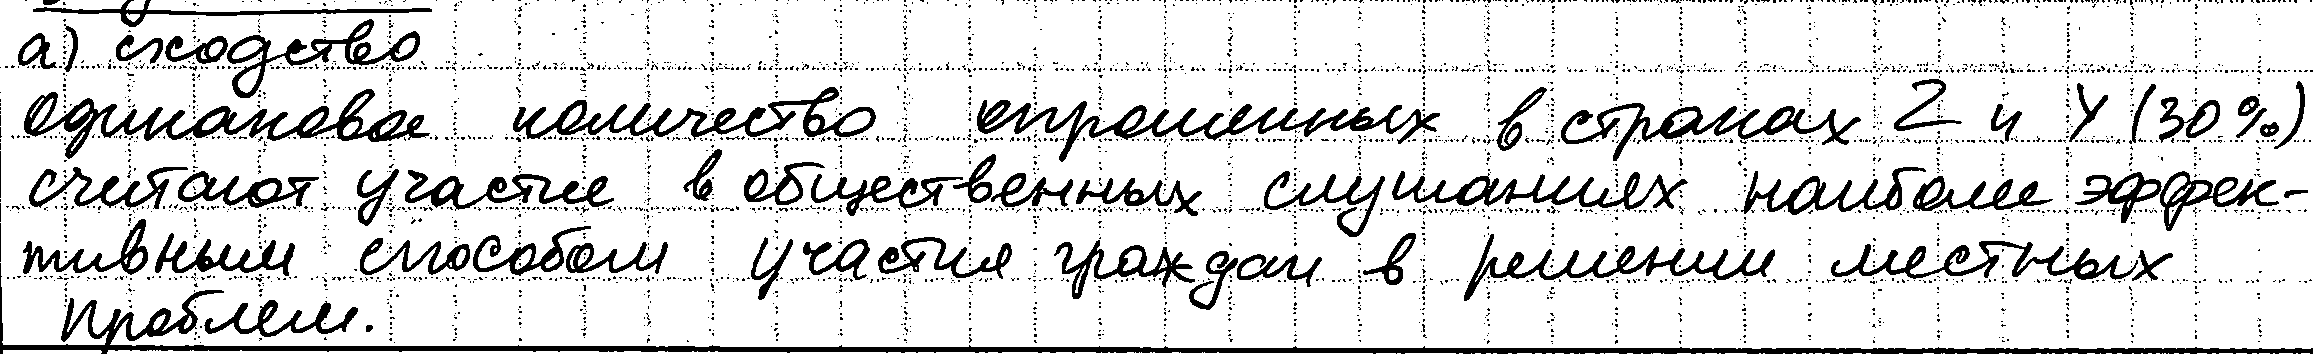 а) сходство
одинаковое количество опрошенных в странах Z и Y (30%)
считают участие в общественных слушаниях наиболее эффек-
тивным способом участия граждан в решении местных
проблем.